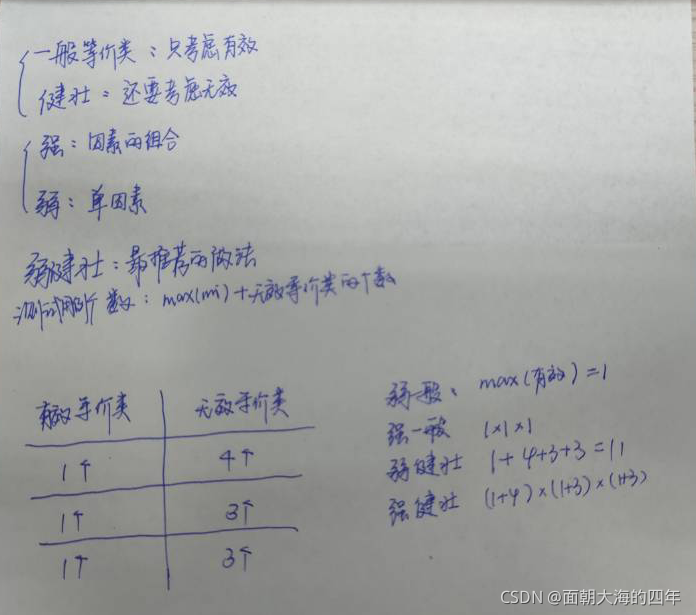 一般等价类：只考虑有效
健壮：还要考虑无效
强：因素的组合
弱：单因素
弱健壮：最推荐的做法
测试用例个数：max(mi)+无效等价类的个数
有效等价类 无效等价类
1个 4个
1个 3个
1个 3个
弱一般： max(有效)=1
强一般 1×1×1
弱健壮 1+4+3+3=11
强健壮 (1+4)×(1+3)×(1+3)
CSDN @面朝大海的四年